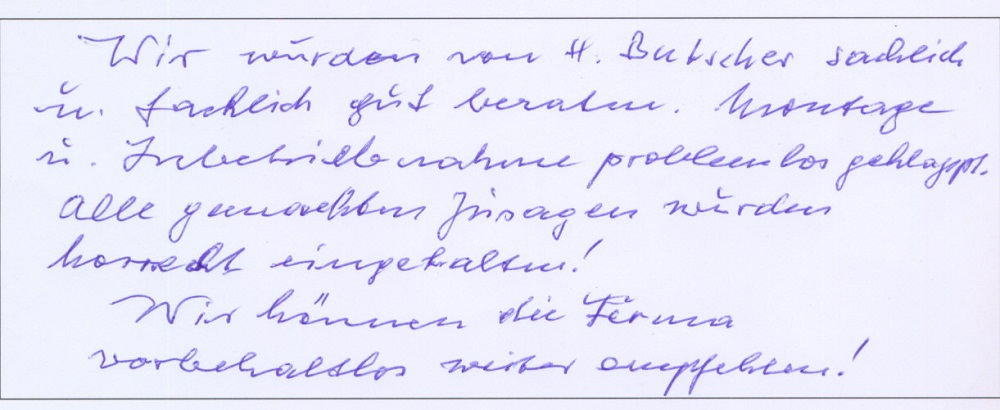 Wir wurden von H. Butscher sachlich
u. fachlich gut beraten. Montage
u. Inbetriebnahme problemlos geklappt.
Alle gemachten Zusagen wurden
korrekt eingehalten!
Wir können die Firma
vorbehaltlos weiter empfehlen!